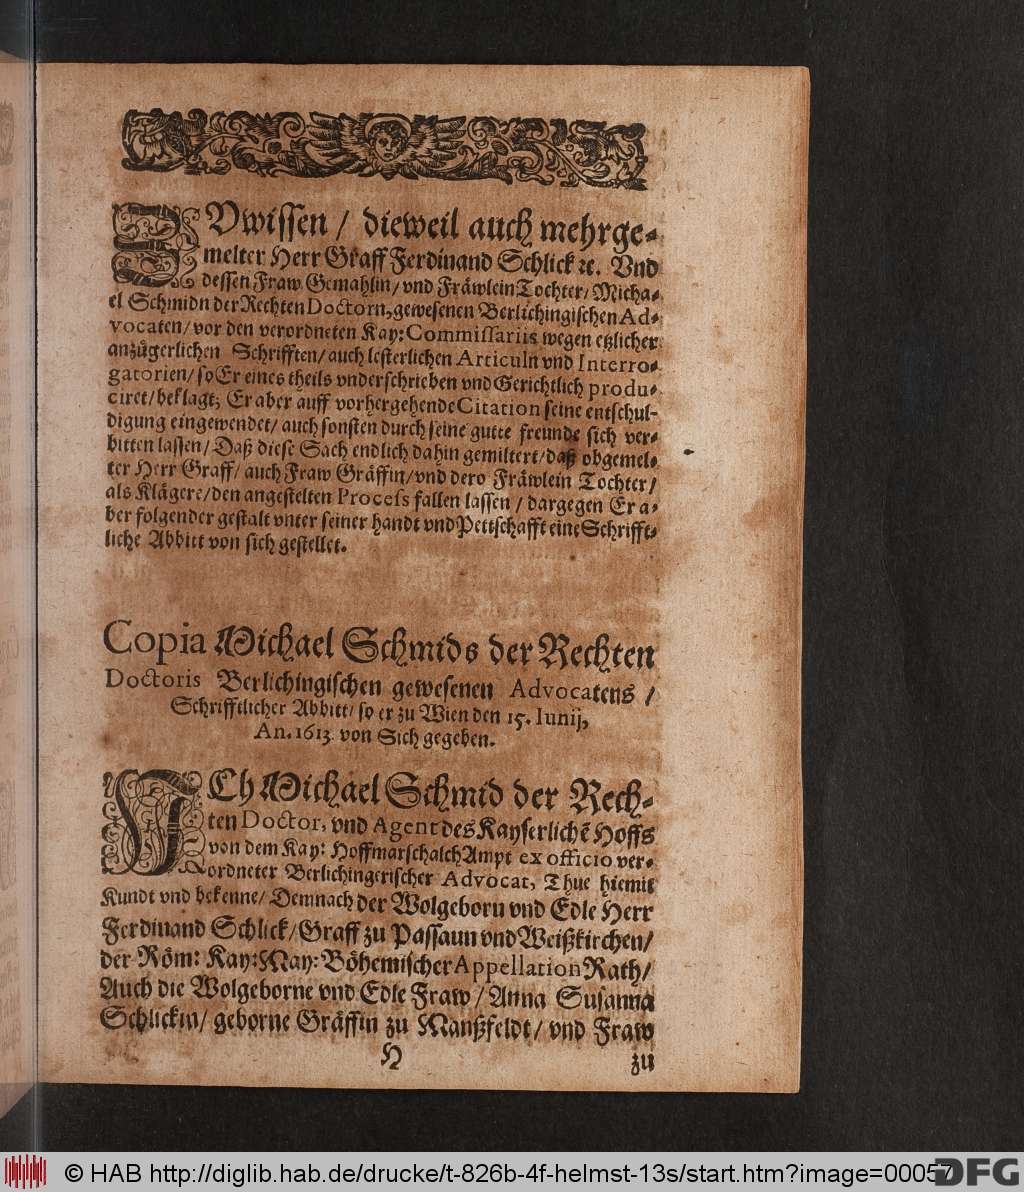 ZUwissen / dieweil auch mehrge-
melter Herr Graff Ferdinand Schlick ꝛc. Vnd
dessen Fraw Gemahlin/ vnd Fräwlein Tochter/ Micha-
el Schmidn der Rechten Doctorn, gewesenen Berlichingischen Ad-
vocaten/ vor den verordneten Kay: Commissariis wegen etzlicher
anzügerlichen Schrifften/ auch lesterlichen Articuln vnd Interro-
gatorien/ so Er eines theils vnderschrieben vnd Gerichtlich produ-
ciret/ beklagt; Er aber auff vorhergehende Citation seine entschul-
digung eingewendet/ auch sonsten durch seine gutte freunde sich ver-
bitten lassen/ Daß diese Sach endlich dahin gemiltert/ daß obgemel-
ter Herr Graff/ auch Fraw Gräffin/ vnd dero Fräwlein Tochter/
als Klägere/ den angestelten Process fallen lassen / dargegen Er a-
ber folgender gestalt vnter seiner handt vnd Pettschafft eine Schrifft-
liche Abbitt von sich gestellet.
Copia Michael Schmids der Rechten
Doctoris Berlichingischen gewesenen Advocatens /
Schrifftlicher Abbitt/ so er zu Wien den 15. Iunij,
An. 1613. von Sich gegeben.
ICh Michael Schmid der Rech-
ten Doctor, vnd Agent des Kayserlichē Hoffs
von dem Kay: Hoffmarschalch Ampt ex officio ver-
ordneter Berlichingerischer Advocat, Thue hiemit
Kundt vnd bekenne/ Demnach der Wolgeborn vnd Edle Herr
Ferdinand Schlick/ Graff zu Passaun vnd Weißkirchen/
der Röm: Kay: May: Böhemischer Appellation Rath/
Auch die Wolgeborne vnd Edle Fraw / Anna Susanna
Schlickin/ geborne Gräffin zu Manßfeldt/ vnd Fraw
H zu
© HAB http://diglib.hab.de/drucke/t-826b-4f-helmst-13s/start.htm?image=00057
DFG